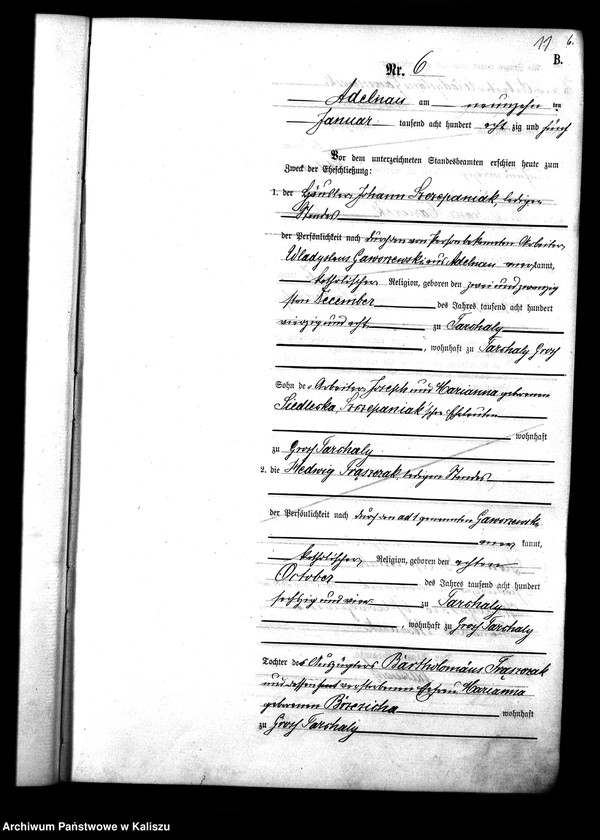 11 6.
B.
Nr. 6
Adelnau am neunzehn ten
Januar tausend acht hundert acht zig und fünf
Vor dem unterzeichneten Standesbeamten erschien heute zum
Zweck der Eheschließung:
1. der Häusler Johann Szczepaniak, ledigen
Standes
der Persönlichkeit nach durch den von Person bekannten Arbeiter
Wladyslaus Gaworzewski aus Adelnau aner kannt,
katholischer Religion, geboren den zwei und zwanzig
sten December des Jahres tausend acht hundert
vierzig und acht zu Tarchaly
, wohnhaft zu Tarchaly Groß
Sohn der Arbeiter Joseph und Marianna geborenen
Siedlecka, Szczepaniak'schen Eheleuten
wohnhaft
zu Groß Tarchaly
2. die Hedwig Trąszczak, ledigen Standes
der Persönlichkeit nach durch den ad 1 genannten Gaworzewski
aner kannt,
katholischer Religion, geboren den achten
October des Jahres tausend acht hundert
sechzig und vier zu Tarchaly
, wohnhaft zu Groß Tarchaly
Tochter des Auszüglers Bartholomäus Trąszczak
und dessen verstorbenen Ehefrau Marianna
geborenen wohnhaft
zu Groß Tarchaly
Archiwum Państwowe w Kaliszu